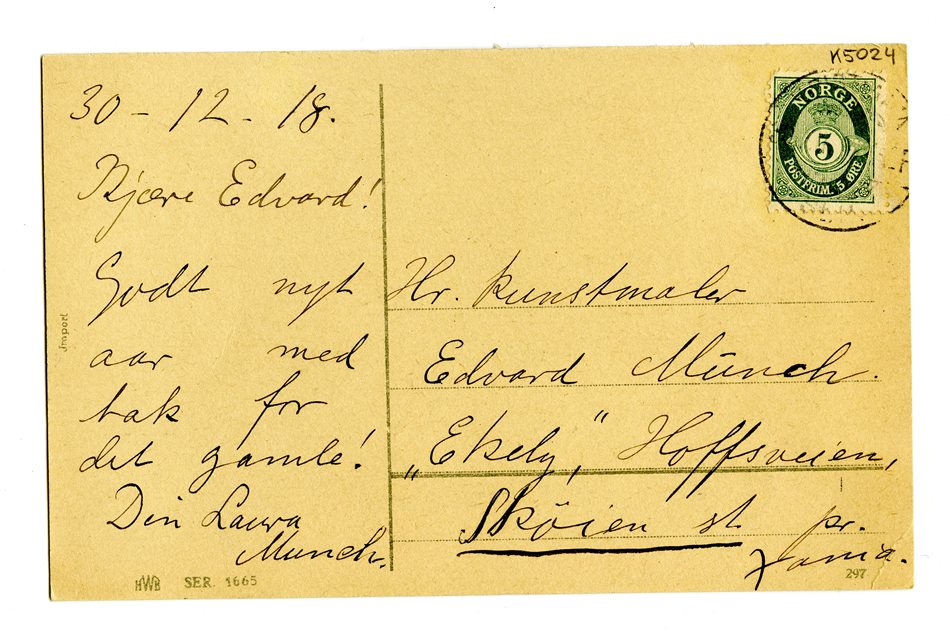 K5024
30 - 12 - 18.
Kjære Edvard!
Godt nyt
aar med
tak for
det gamle!
Din Laura
Munch.
NORGE
5
POSTFRIM. 5 ØRE
Hr. Kunstmaler
Edvard Munch.
„Ekely,“ Hoffsveien,
Skøien st. pr.
Import
HWB SER. 1665
297